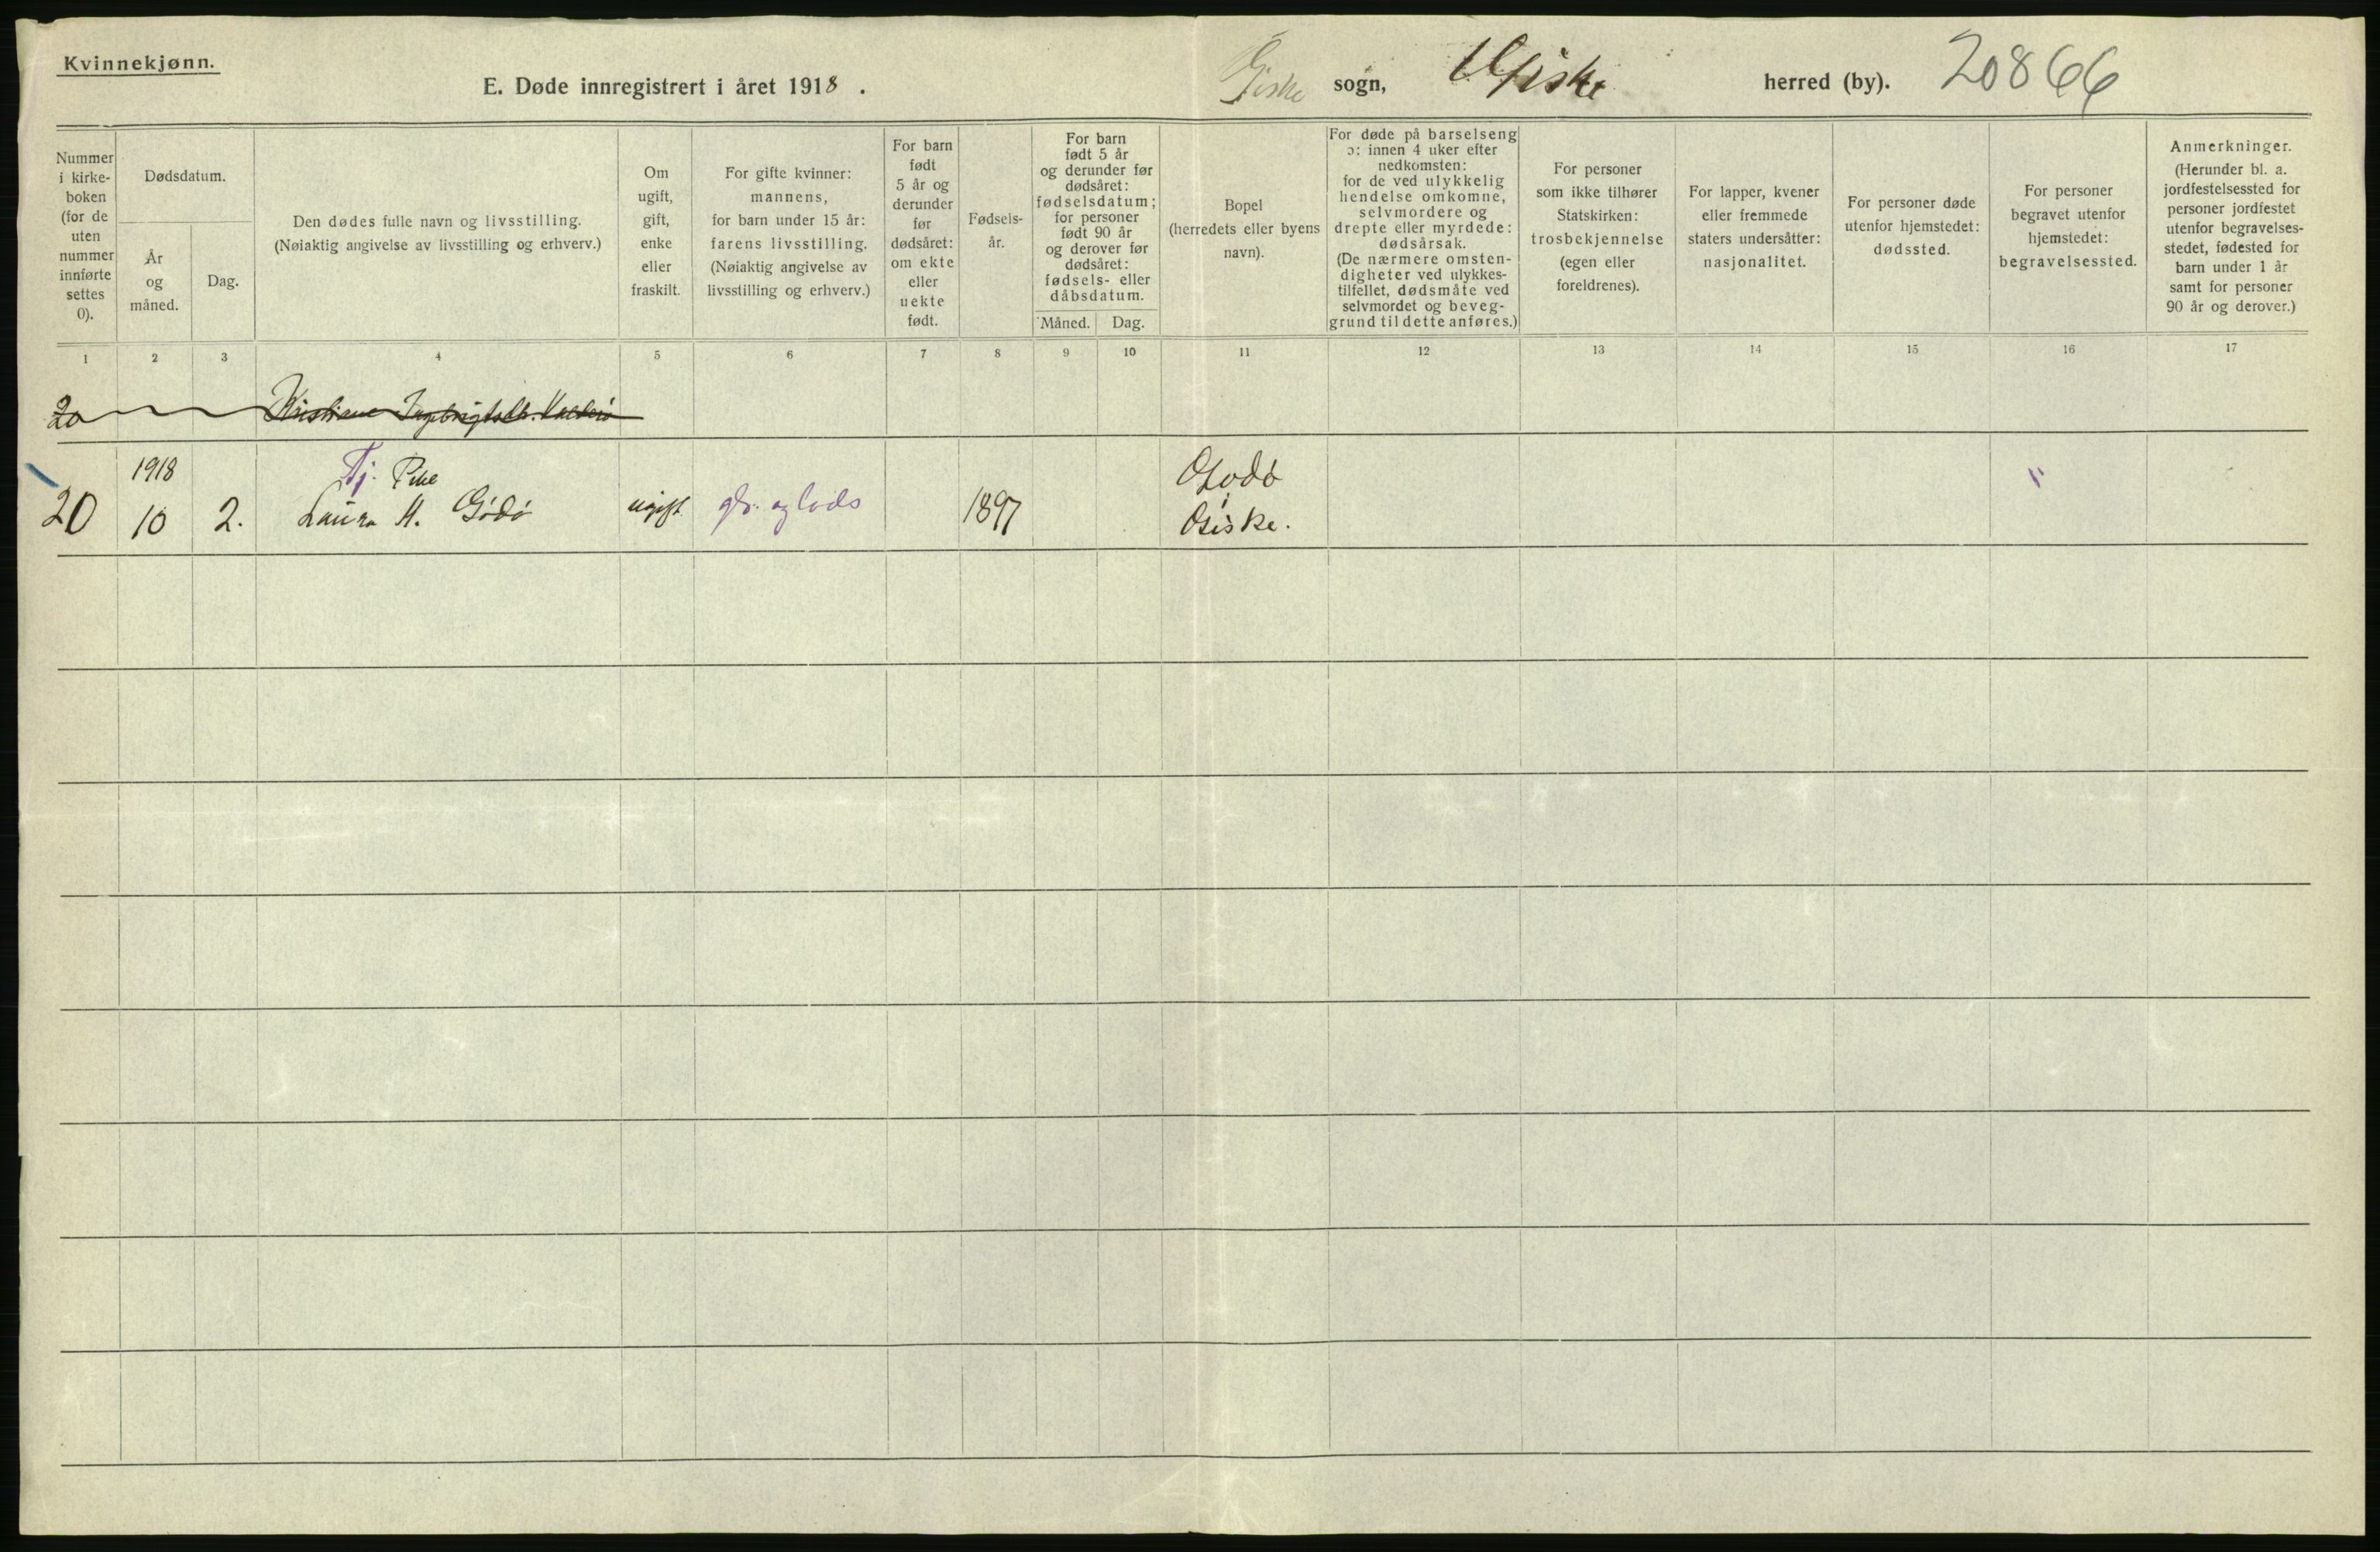 Kvinnekjønn.
E. Døde innregistrert i året 1918.
Giske sogn, Giske herred (by). 20866
Nummer
i kirke-
boken
(for de
uten
nummer
innførte
settes
0).
Dødsdatum.
År
og
måned.
Dag.
Den dødes fulle navn og livsstilling.
(Nøiaktig angivelse av livsstilling og erhverv.)
Om
ugift,
gift,
enke
eller
fraskilt.
For gifte kvinner:
mannens,
for barn under 15 år:
farens livsstilling.
(Nøiaktig angivelse av
livsstilling og erhverv.)
For barn
født
5 år og
derunder
før
dødsåret:
om ekte
eller
uekte
født.
Fødsels-
år.
For barn
født 5 år
og derunder før
dødsåret:
fødselsdatum;
for personer
født 90 år
og derover før
dødsåret:
fødsels- eller
dåbsdatum.
Måned.
Dag.
Bopel
(herredets eller byens
navn).
For døde på barselseng
ɔ: innen 4 uker efter
nedkomsten:
for de ved ulykkelig
hendelse omkomne,
selvmordere og
drepte eller myrdede:
dødsårsak.
(De nærmere omsten-
digheter ved ulykkes-
tilfellet, dødsmåte ved
selvmordet og beveg-
grund til dette anføres.)
For personer
som ikke tilhører
Statskirken:
trosbekjennelse
(egen eller
foreldrenes).
For lapper, kvener
eller fremmede
staters undersåtter:
nasjonalitet.
For personer døde
utenfor hjemstedet:
dødssted.
For personer
begravet utenfor
hjemstedet:
begravelsessted.
Anmerkninger.
(Herunder bl. a.
jordfestelsessted for
personer jordfestet
utenfor begravelses-
stedet, fødested for
barn under 1 år
samt for personer
90 år og derover.)
1 2 3 4 5 6 7 8 9 10 11 12 13 14 15 16 17
20 Kristiane Ingebrigtsdt. Valderø
1918 Tj. Pike Godø
20 10 2. Laura H. Gódó ugift gbr. og lods 1897 Giske.